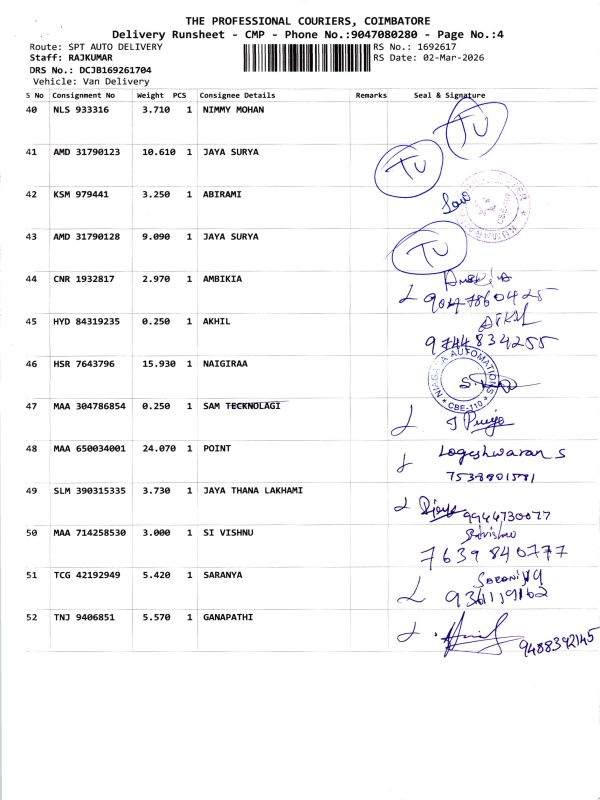 THE PROFESSIONAL COURIERS, COIMBATORE
Delivery Runsheet - CMP - Phone No.:9047080280 - Page No.:4
Route: SPT AUTO DELIVERY RS No.: 1692617
Staff: RAJKUMAR RS Date: 02-Mar-2026
DRS No.: DCJB169261704
Vehicle: Van Delivery
S No Consignment No Weight PCS Consignee Details Remarks Seal & Signature
40 NLS 933316 3.710 1 NIMMY MOHAN
TU
41 AMD 31790123 10.610 1 JAYA SURYA
TU
42 KSM 979441 3.250 1 ABIRAMI
43 AMD 31790128 9.090 1 JAYA SURYA
TU
44 CNR 1932817 2.970 1 AMBIKIA
9047860425
45 HYD 84319235 0.250 1 AKHIL
9744834255
46 HSR 7643796 15.930 1 NAIGIRAA
NIAGARA AUTOMATIONS
* CBE-110 *
47 MAA 304786854 0.250 1 SAM TECKNOLAGI
48 MAA 650034001 24.070 1 POINT
Logeshwaran S
49 SLM 390315335 3.730 1 JAYA THANA LAKHAMI
9944730077
50 MAA 714258530 3.000 1 SI VISHNU
7639 840777
51 TCG 42192949 5.420 1 SARANYA
52 TNJ 9406851 5.570 1 GANAPATHI
9488392145